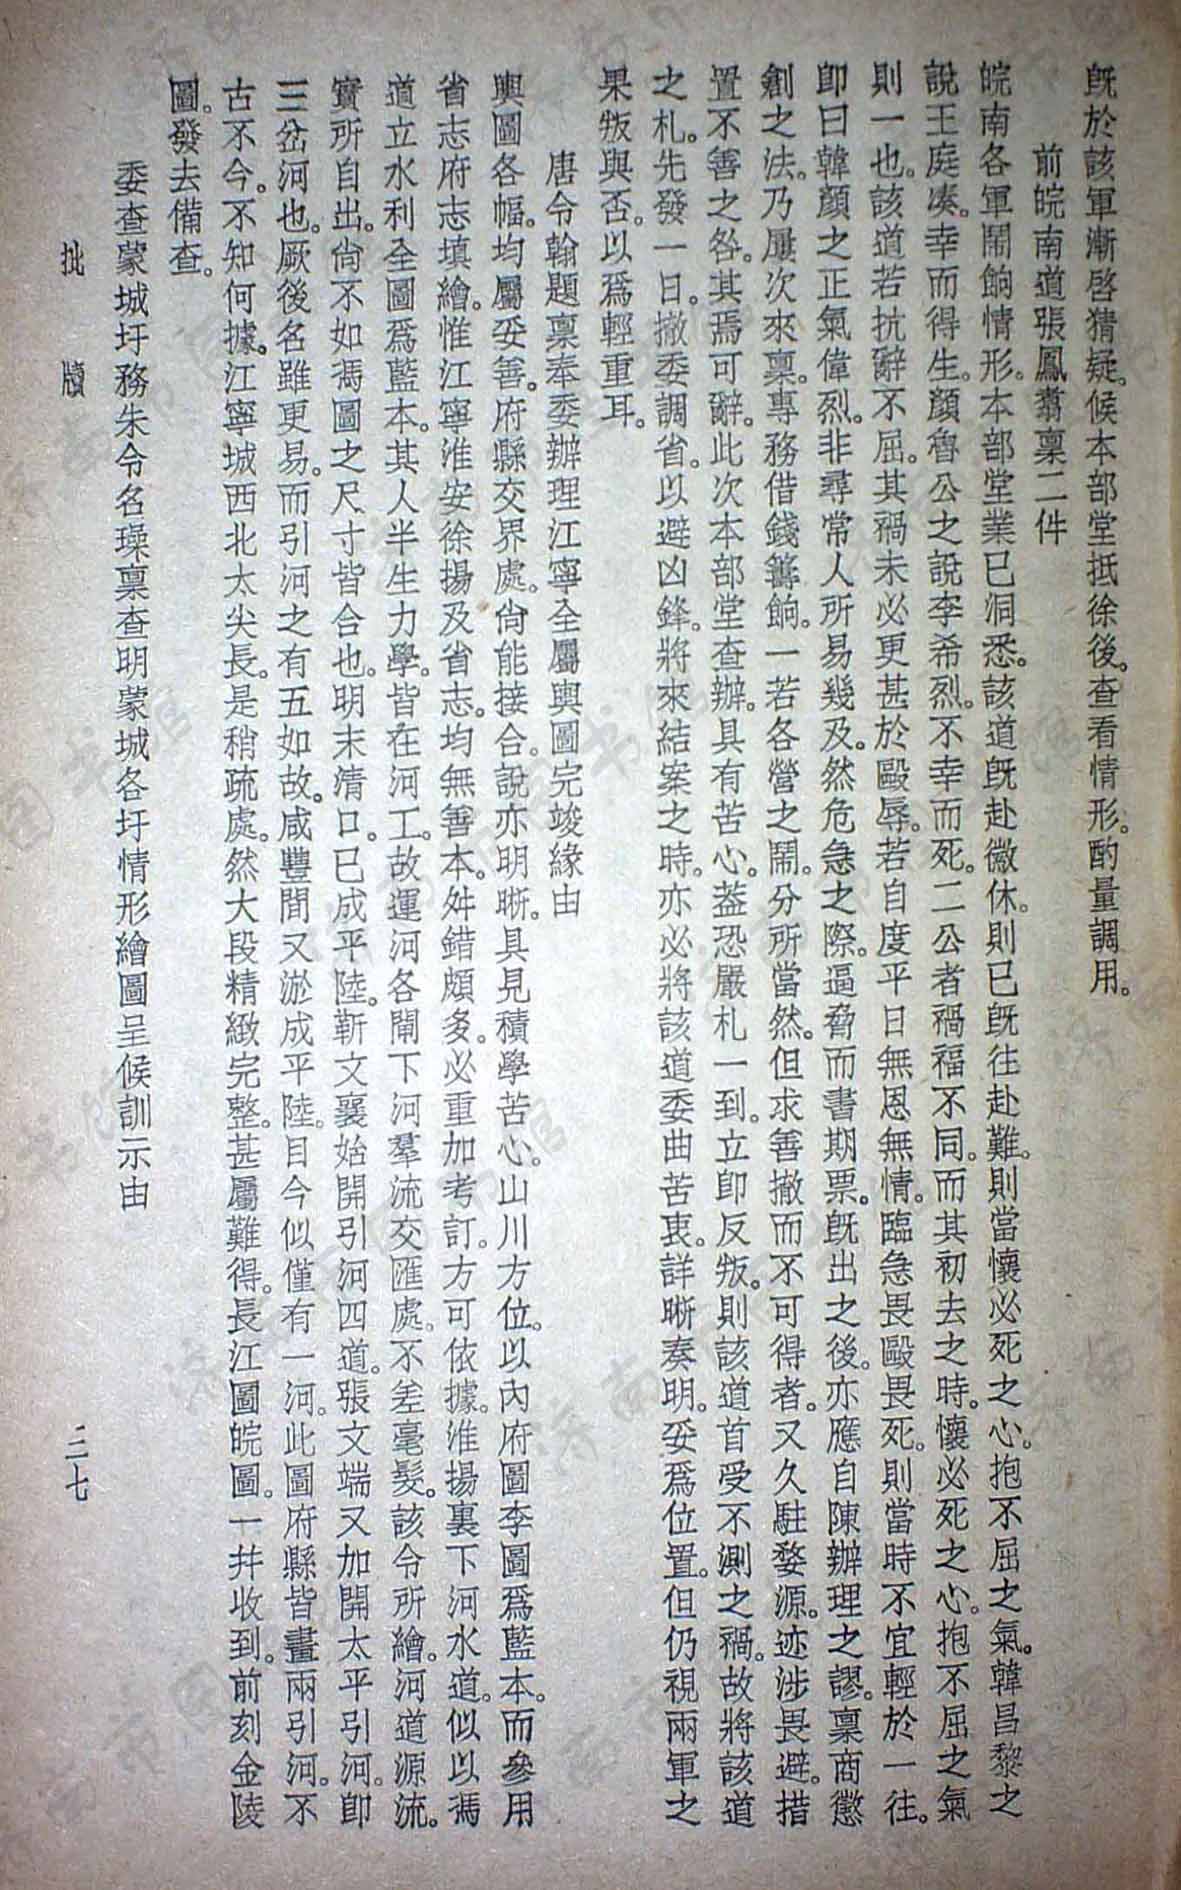 既於該軍漸啓猜疑。候本部堂抵徐後。查看情形。酌量調用。
前皖南道張鳳翥稟二件
皖南各軍鬧餉情形。本部堂業已洞悉。該道既赴徽休。則已既往赴難。則當懷必死之心。抱不屈之氣。韓昌黎之
說王庭凑。幸而得生。顏魯公之說李希烈。不幸而死。二公者禍福不同。而其初去之時。懷必死之心。抱不屈之氣
則一也。該道若抗辭不屈。其禍未必更甚於毆辱。若自度平日無恩無情。臨急畏毆畏死。則當時不宜輕於一往。
即曰韓顏之正氣偉烈。非尋常人所易幾及。然危急之際。逼脅而書期票。既出之後。亦應自陳辦理之謬。稟商懲
創之法。乃屢次來稟。專務借錢籌餉。一若各營之鬧。分所當然。但求善撤而不可得者。又久駐婺源。迹涉畏避。措
置不善之咎。其焉可辭。此次本部堂查辦。具有苦心。蓋恐嚴札一到。立即反叛。則該道首受不測之禍。故將該道
之札。先發一日。撤委調省。以避凶鋒。將來結案之時。亦必將該道委曲苦衷。詳晰奏明。妥爲位置。但仍視兩軍之
果叛與否。以爲輕重耳。
唐令翰題稟奉委辦理江寧全屬輿圖完竣緣由
輿圖各幅。均屬妥善。府縣交界處。尙能接合。說亦明晰。具見積學苦心。山川方位。以內府圖李圖爲藍本。而參用
省志府志填繪。惟江寧淮安徐揚及省志。均無善本。舛錯頗多。必重加考訂。方可依據。淮揚裏下河水道。似以馮
道立水利全圖爲藍本。其人半生力學。皆在河工。故運河各閘下河羣流交匯處。不差毫髮。該令所繪。河道源流。
實所自出。尙不如馮圖之尺寸皆合也。明末清口。已成平陸。靳文襄始開引河四道。張文端又加開太平引河。卽
三岔河也。厥後名雖更易。而引河之有五如故。咸豐間又淤成平陸。目今似僅有一河。此圖府縣皆畫兩引河。不
古不今。不知何據。江寧城西北太尖長。是稍疏處。然大段精緻完整。甚屬難得。長江圖皖圖。一幷收到。前刻金陵
圖。發去備查。
委查蒙城圩務朱令名璪稟查明蒙城各圩情形繪圖呈候訓示由
批牘
二七